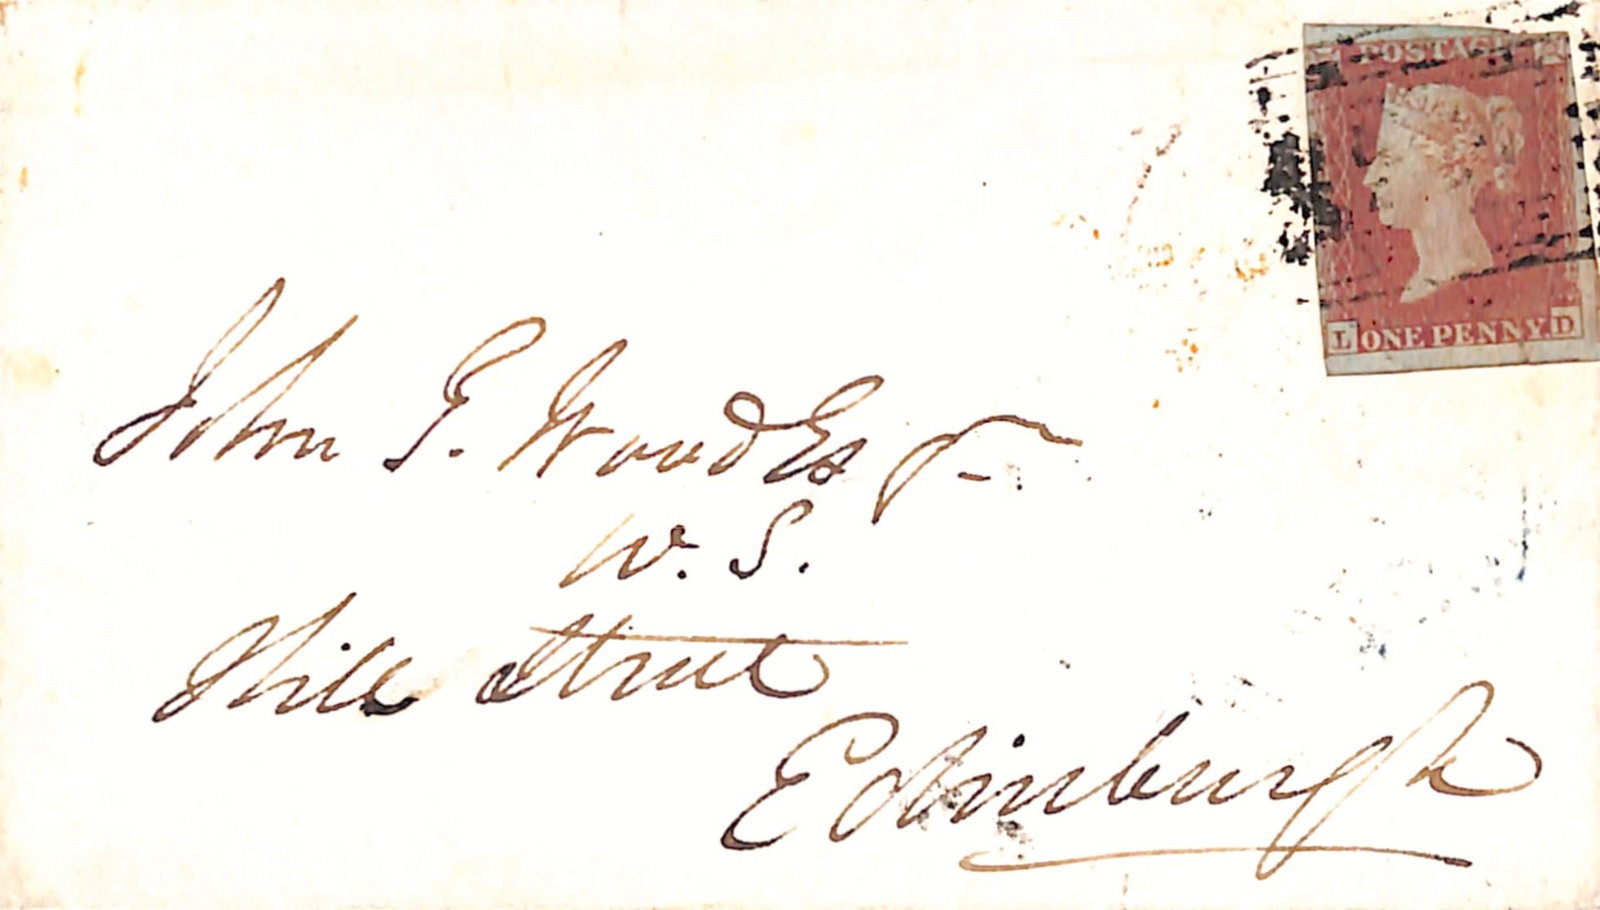 POSTAGE
L ONE PENNY. D
John G. Wood Esqr.
W. S.
Hill Street
Edinburgh